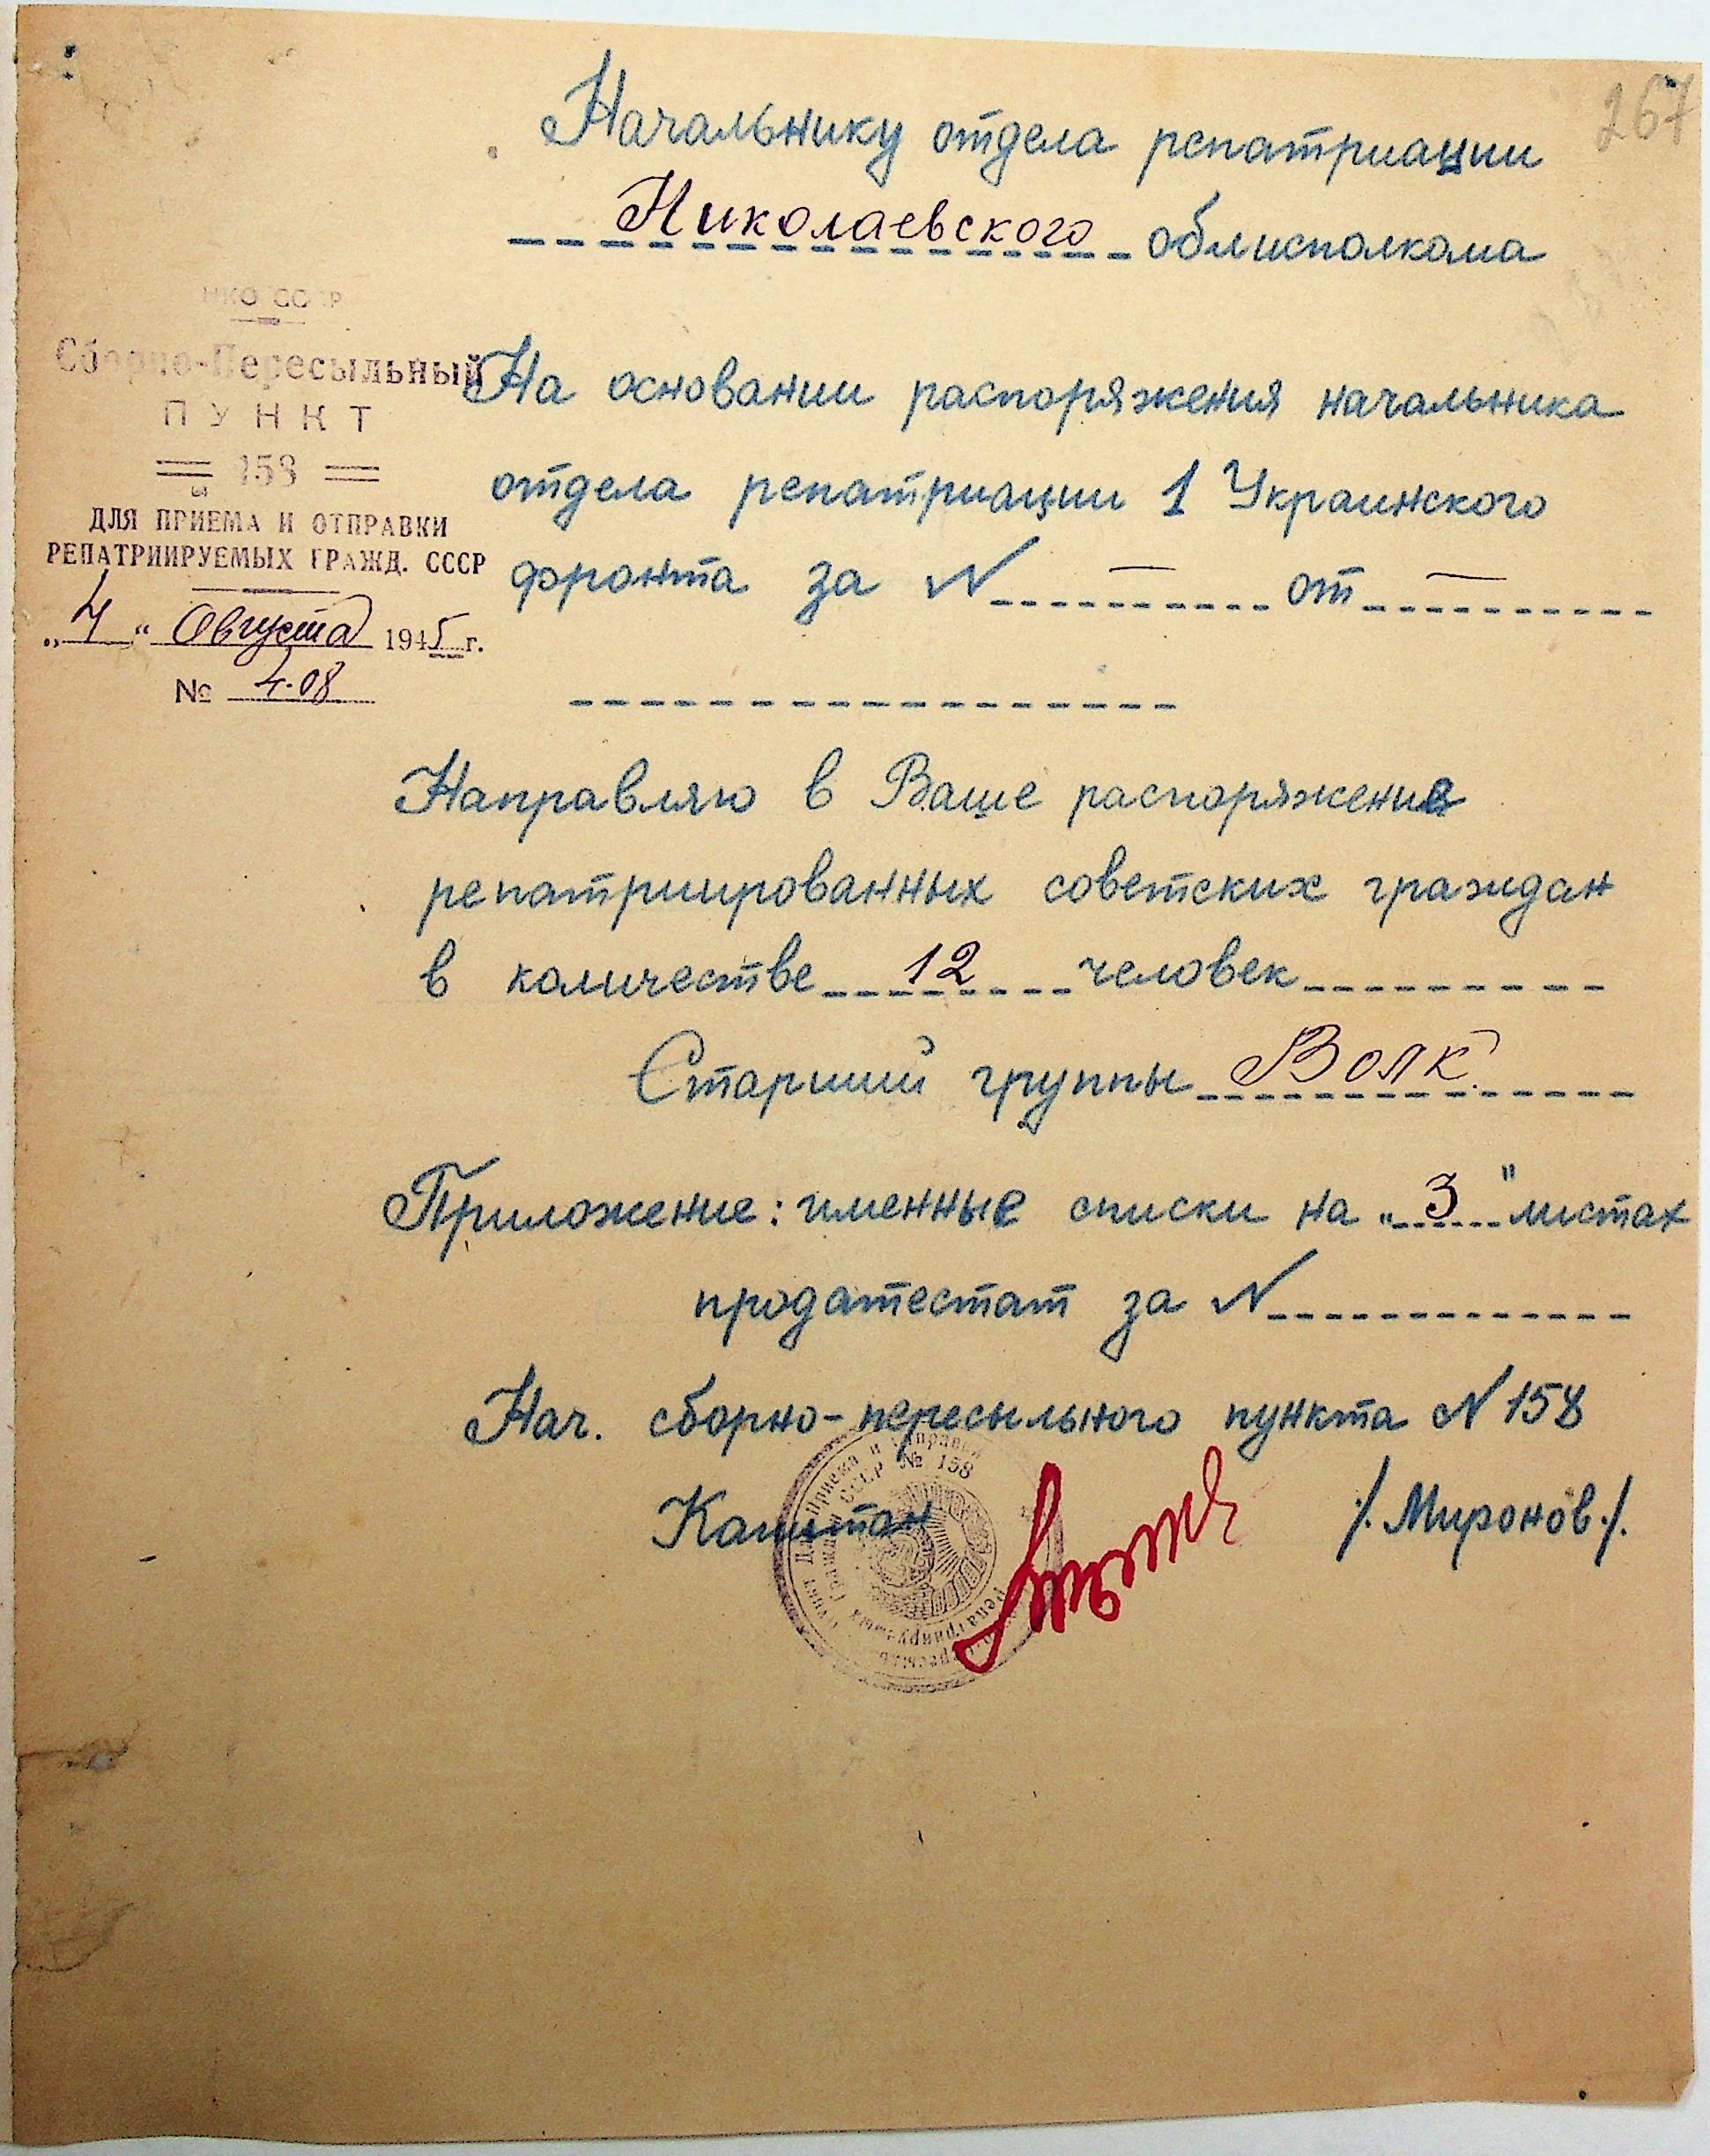 267
Начальнику отдела репатриации
Николаевского облисполкома
НКО СССР
Сборно-Пересыльный
ПУНКТ
158
ДЛЯ ПРИЕМА И ОТПРАВКИ
РЕПАТРИИРУЕМЫХ ГРАЖД. СССР
„4“ Августа 1945 г.
№ 4-08
На основании распоряжения начальника
отдела репатриации 1 Украинского
фронта за N — от —
Направляю в Ваше распоряжение
репатриированных советских граждан
в количестве 12 человек
Старший группы Волк
Приложение: именные списки на „3" листах
продатестат за N
Нач. сборно-пересыльного пункта N 158
Капитан /. Миронов./.
Приема и Отправки
СССР № 158